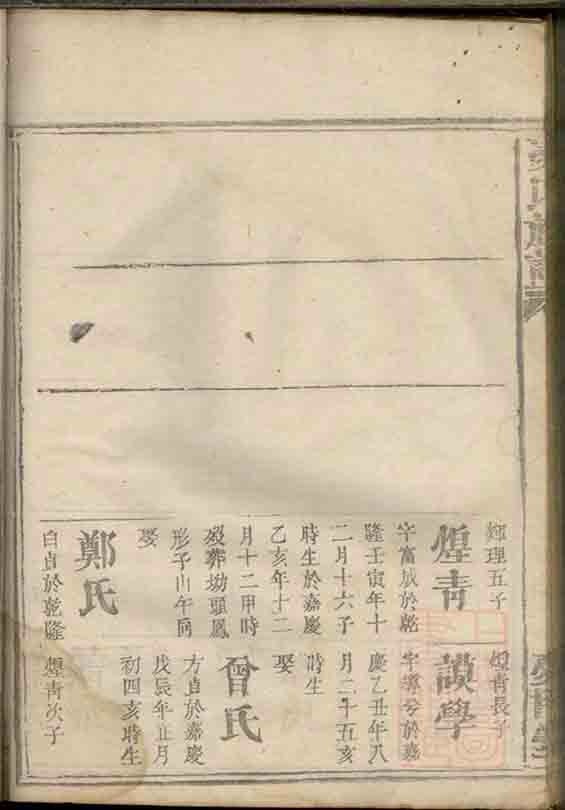 煇理五子
煌青
字富放於乾
隆壬寅年十
二月十六子
時生於嘉慶
乙亥年十二
月十二甲時
歿葬坳頭鳳
形子山午向
娶
鄭氏
白貞於乾隆
煌青長子
讀學
慶乙丑年八
月二十五亥
時生
娶
曾氏
方貞於嘉慶
戊辰年正月
初四亥時生
煌青次子